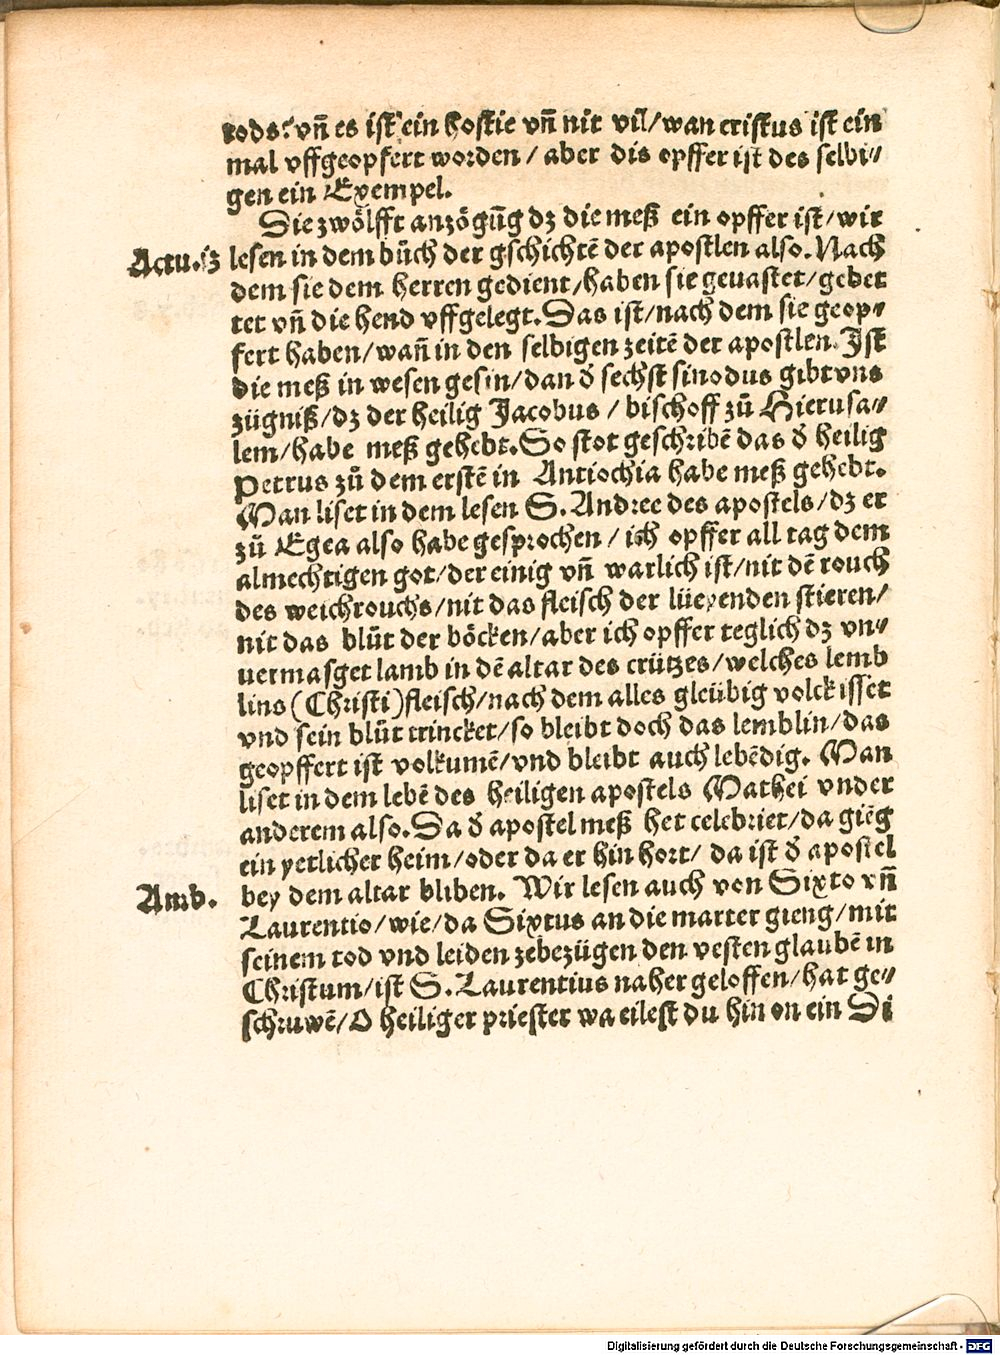 tods: vñ es ist ein hostie vñ nit vil/wan cristus ist ein
mal vffgeopfert worden / aber dis opffer ist des selbi⸗
gen ein Exempel.
Die zwölfft anzögūg dz die meß ein opffer ist/wir
Actu.13 lesen in dem bůch der gschichtē der apostlen also. Nach
dem sie dem herren gedient/haben sie geuastet/gebet
tet vñ die hend vffgelegt. Das ist/nach dem sie geop⸗
fert haben/wañ in den selbigen zeitē der apostlen. Ist
die meß in wesen gesin/dan ď sechst sinodus gibt vns
zügniß/dz der heilig Jacobus / bischoff zů Hierusa⸗
lem/habe meß gehebt. So stot geschribē das ď heilig
Petrus zů dem erstē in Antiochia habe meß gehebt.
Man liset in dem lesen S. Andree des apostels/dz er
zů Egea also habe gesprochen / ich opffer all tag dem
almechtigen got/der einig vñ warlich ist/nit dē rouch
des weichrouchs/nit das fleisch der lüeyenden stieren/
nit das blůt der böcken/aber ich opffer teglich dz vn⸗
uermasget lamb in dē altar des crützes/welches lemb
lins (Christi) fleisch/nach dem alles gleübig volck isset
vnd sein blůt trincket/so bleibt doch das lemblin/das
geopffert ist volkumē/vnd bleibt auch lebēdig. Man
liset in dem lebē des heiligen apostels Mathei vnder
anderem also. Da ď apostel meß het celebriet/da giēg
ein yetlicher heim/oder da er hin hort/ da ist ď apostel
Amb. bey dem altar bliben. Wir lesen auch von Sixto vñ
Laurentio/wie/da Sixtus an die marter gieng/mit
seinem tod vnd leiden zebezügen den vesten glaubē in
Christum/ist S. Laurentius naher geloffen/hat ge⸗
schruwē/O heiliger priester wa eilest du hin on ein Di
Digitalisierung gefördert durch die Deutsche Forschungsgemeinschaft - DFG